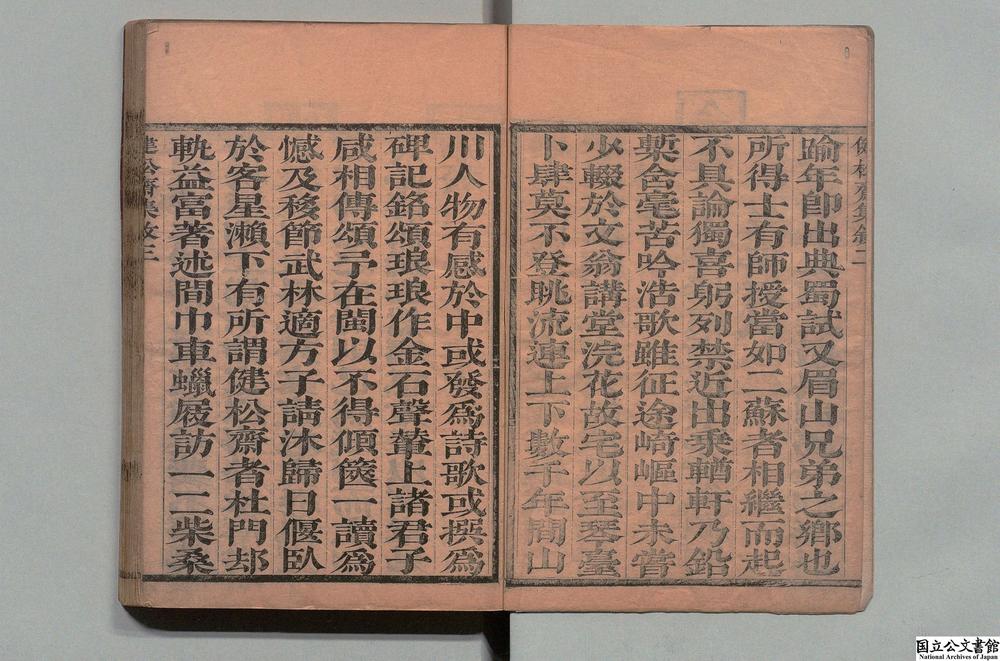 健松齋集敘二
踰年即出典蜀試又眉山兄弟之鄉也
所得士有師授當如二蘇者相繼而起
不具論獨喜躬列禁近出乘輶軒乃鉛
槧含毫苦吟浩歌雖征途崎嶇中未嘗
少輟於文翁講堂浣花故宅以至琴臺
卜肆莫不登眺流連上下數千年間山
川人物有感於中或發爲詩歌或撰爲
碑記銘頌琅琅作金石聲輦上諸君子
咸相傳頌予在閩以不得傾篋一讀爲
憾及移節武林適方子請沐歸日偃臥
於客星瀨下有所謂健松齋者杜門却
軌益富著述間巾車蠟屐訪一二柴桑
健松齋集敘三
国立公文書館
National Archives of Japan